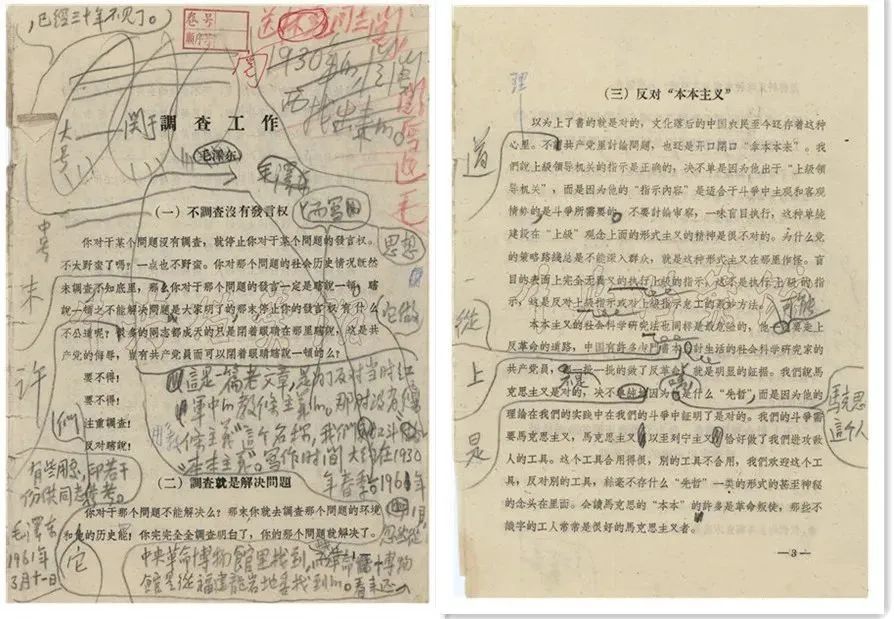 已經三十年不見了。
卷号
順序号
1930年
大号
关于
調查工作
（毛澤东）
毛澤东
（一）不調查沒有發言权
中号
你对于某个問題沒有調查，就停止你对于某个問題的發言权。
不太野蛮了嗎？一点也不野蛮。你对那个問題的社会历史情况旣然
未調查不知底里，那么你对于那个問題的發言一定是瞎說一頓。瞎
說一頓之不能解决問題是大家明了的那末停止你的發言权有什么
不公道呢？很多的同志都成天的只是閉着眼睛在那里瞎說，这是共
产党的侮辱，豈有共产党員而可以閉着眼睛瞎說一頓的么？
要不得！
要不得！
注重調查！
反对瞎說！
思想
未
許
們
這是一篇老文章，是为了反对当时紅
軍中的教條主義的。那时沒有"教
條主義"这个名称，我們叫它做
"本本主義"。写作时间大約在1930
年春季
1961年
1月
有些用
印若干
份供同志
参考。
毛澤东
1961年
3月十一日
（二）調查就是解决問題
你对于那个問題不能解决么？那末你就去調查那个問題的环境
和他的历史能！你完完全全調查明白了，你的那个問題就解决了。
它
中央革命博物館里找到，革命博物
館是從福建龍岩地委找到的。看来还
（三）反对"本本主义"
理
以为上了書的就是对的，文化落后的中国农民至今还存着这种
心里。不謂共产党里討論問題，也还是开口閉口"拿本本来"。我
們說上級領导机关的指示是正确的，决不单是因为他出于"上級領
导机关"，而是因为他的"指示內容"是适合于斗爭中主观和客观
情势的是斗爭所需要的。不要討論审察，一味盲目执行，这种单純
建設在"上級"观念上面的形式主义的精神是很不对的。为什么党
的策略路綫总是不能深入群众，就是这种形式主义在那里作怪。盲
目的表面上完全无異义的执行上級的指示，这不是执行上級的指
示，这是反对上級指示或对上級指示怠工的最妙方法。
本本主义的社会科学研究法也同样是最危险的，他要走上
反革命的道路，中国有許多专門書本討計生活的社会科学研究家的
共产党員，一批一批的做了反革命，就是明显的証据。我們說馬
克思主义是对的，决不是因为是什么"先哲"，而是因为他的
理論在我們的实践中在我們的斗爭中証明了是对的。我們的斗爭需
要馬克思主义，馬克思主义以至列宁主义恰好做了我們进攻敌
人的工具。这个工具合用得很，別的工具不合用，我們欢迎这个工
具，反对別的工具，絲毫不存什么"先哲"一类的形式的甚至神秘
的念头在里面。会讀馬克思的"本本"的許多是革命叛徒，那些不
識字的工人常常是很好的馬克思主义者。
道
從
上
是
可能
馬克思
這个人
—3—